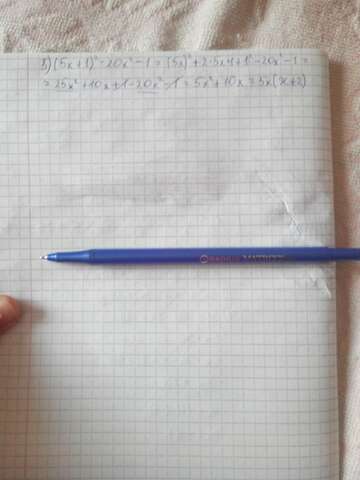 В) (5x+1)² - 20x² - 1 = (5x)² + 2·5x·1 + 1² - 20x² - 1 =
= 25x² + 10x + 1 - 20x² - 1 = 5x² + 10x = 5x(x+2)